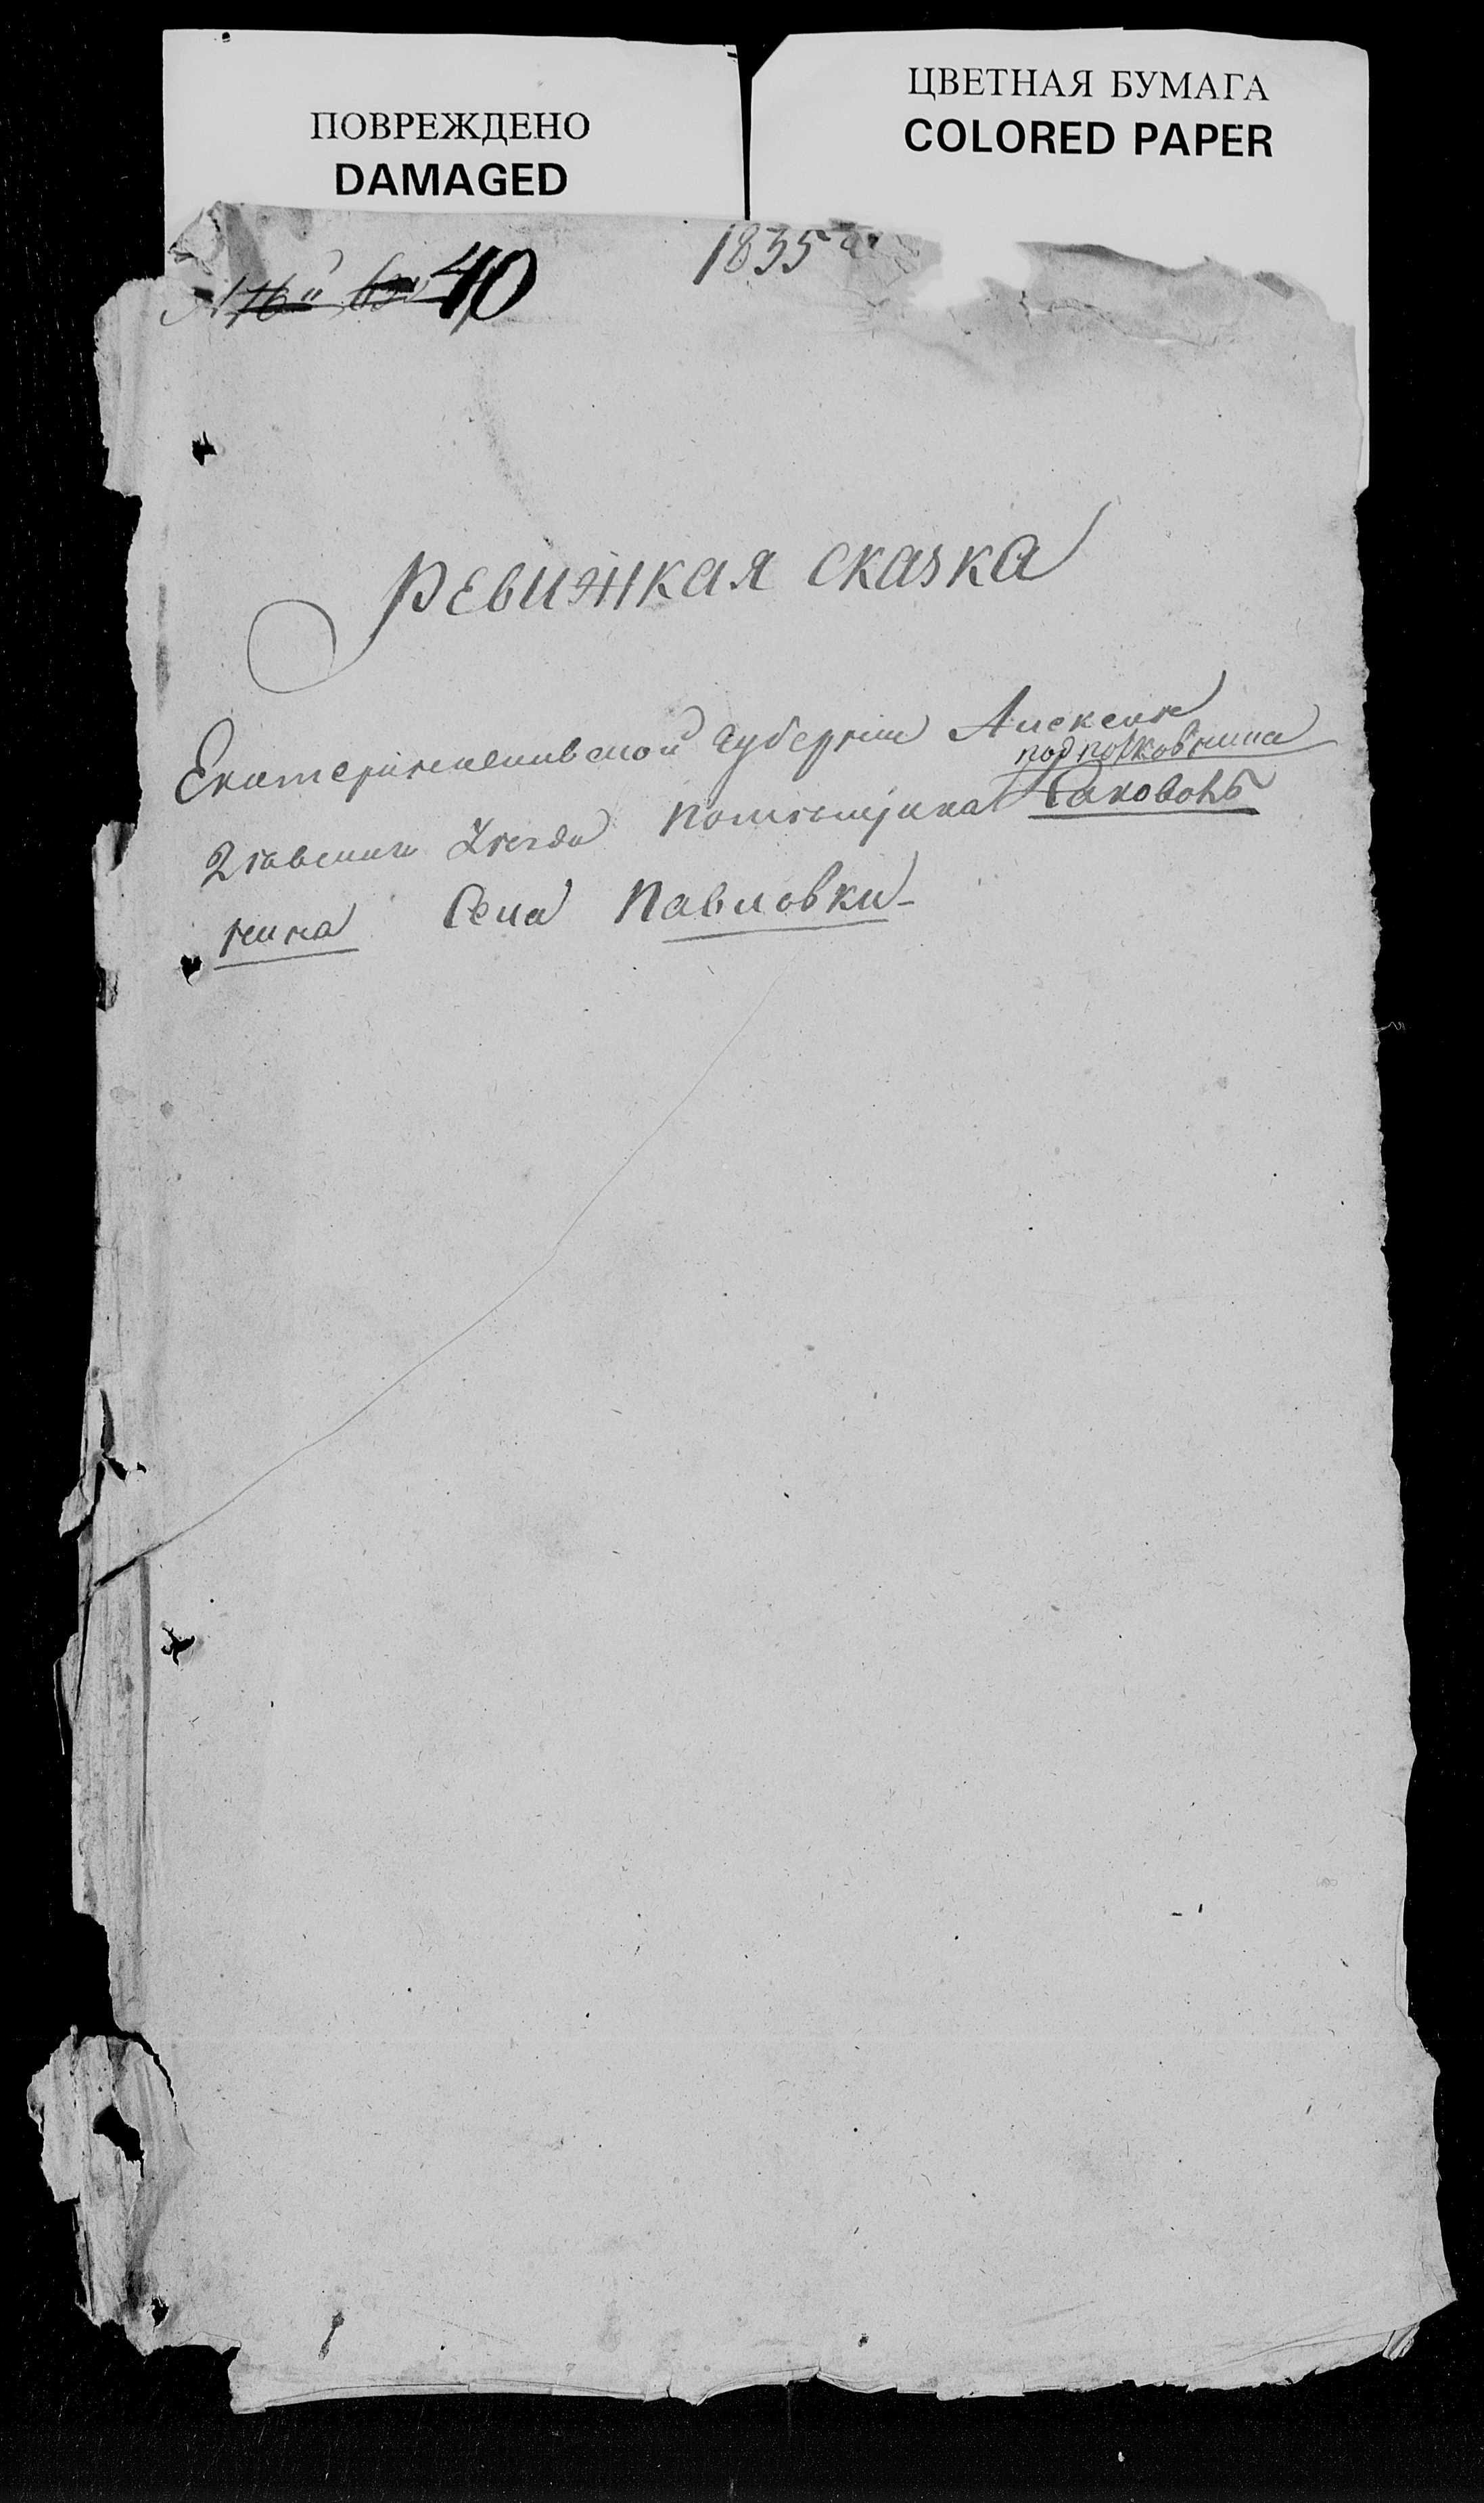 ПОВРЕЖДЕНО
DAMAGED
ЦВЕТНАЯ БУМАГА
COLORED PAPER
40
1835
Ревижкая сказка
Екатеринославской Губернии Алексан
подполковника
дровскаго Уезда Помещика
нина Села Павловки